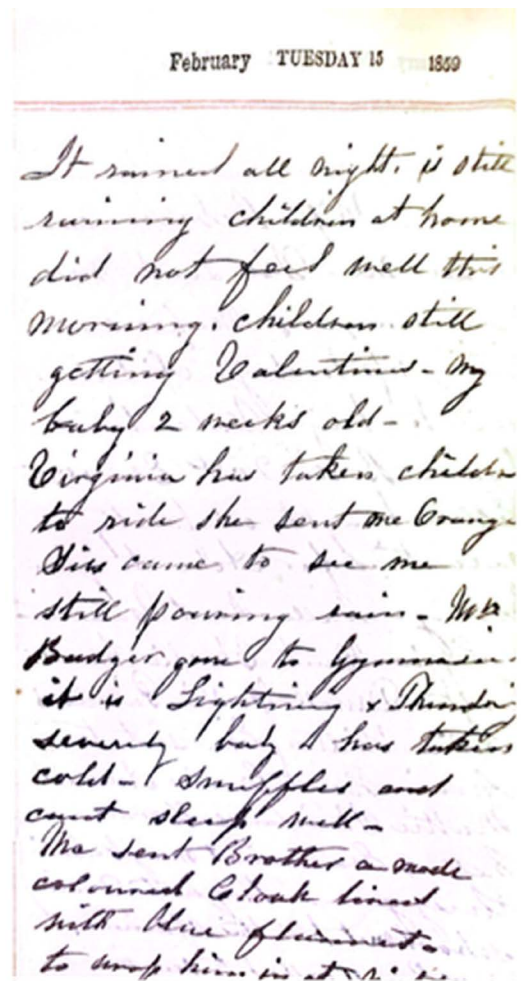 February TUESDAY 15 1859
It rained all night. is still
raining children at home
did not feel well this
morning. children still
getting Valentines - My
baby 2 weeks old -
Virginia has taken childn
to ride she sent me Orange
came to see me
still pouring rain - Mr
Badger gone to Gymnasiu
it is Lightning & Thundrig
severely baby has taken
cold - snuffles and
cant sleep well -
Ma sent Brother a mode
coloured Cloak lined
with blue flannet -
to wrap him in at